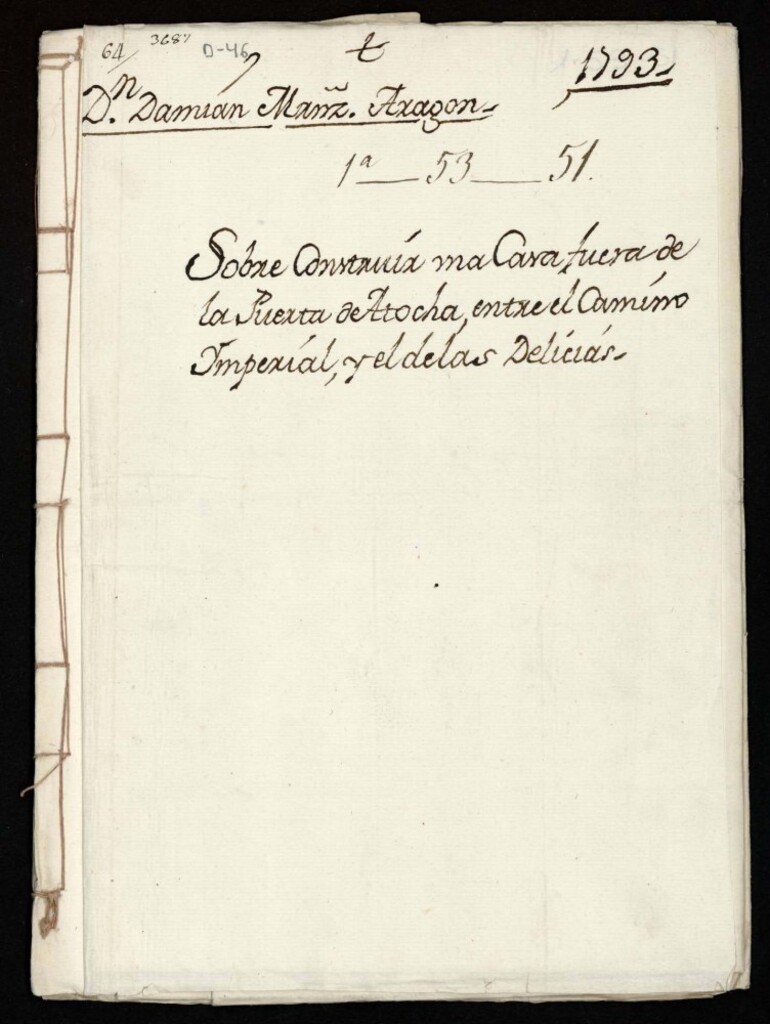 64/ 3687 D-46
1793
Dn. Damian Mrnz. Aragon
1a 53 51.
Sobre Construir una Casa fuera de
la Puerta de Atocha, entre el Camino
Imperial, y el de las Delicias